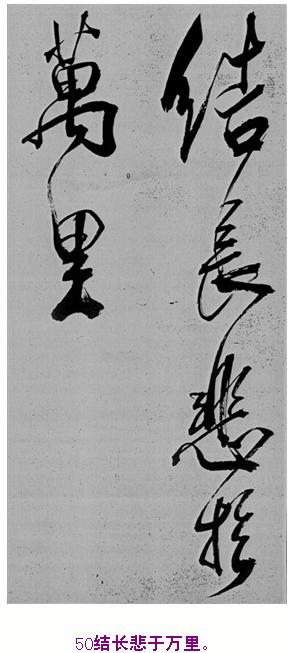 结長悲於
萬里
50结长悲于万里。